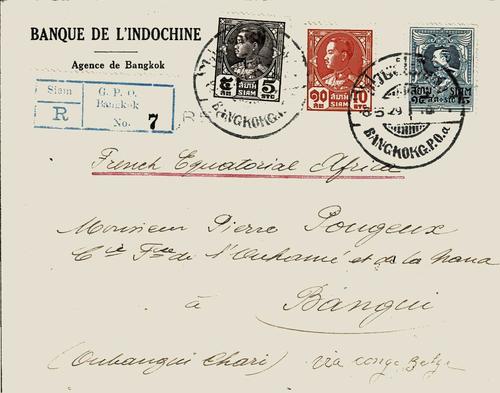 BANQUE DE L'INDOCHINE
Agence de Bangkok
Siam G. P. O.
R Bangkok
No. 7
R
สยาม
SIAM
๕ 5
สต STG
สยาม
SIAM
๑๐ 10
สต STG
สยาม SIAM
๑๕ 15
BANGKOK G.P.O.
BANGKOK G.P.O.a
29
French Equatorial Africa
Monsieur Pierre Pougeux
Cie Fse de l'Ouhamé et de la Nana
à
Bangui
(Oubangui Chari) via Congo Belge